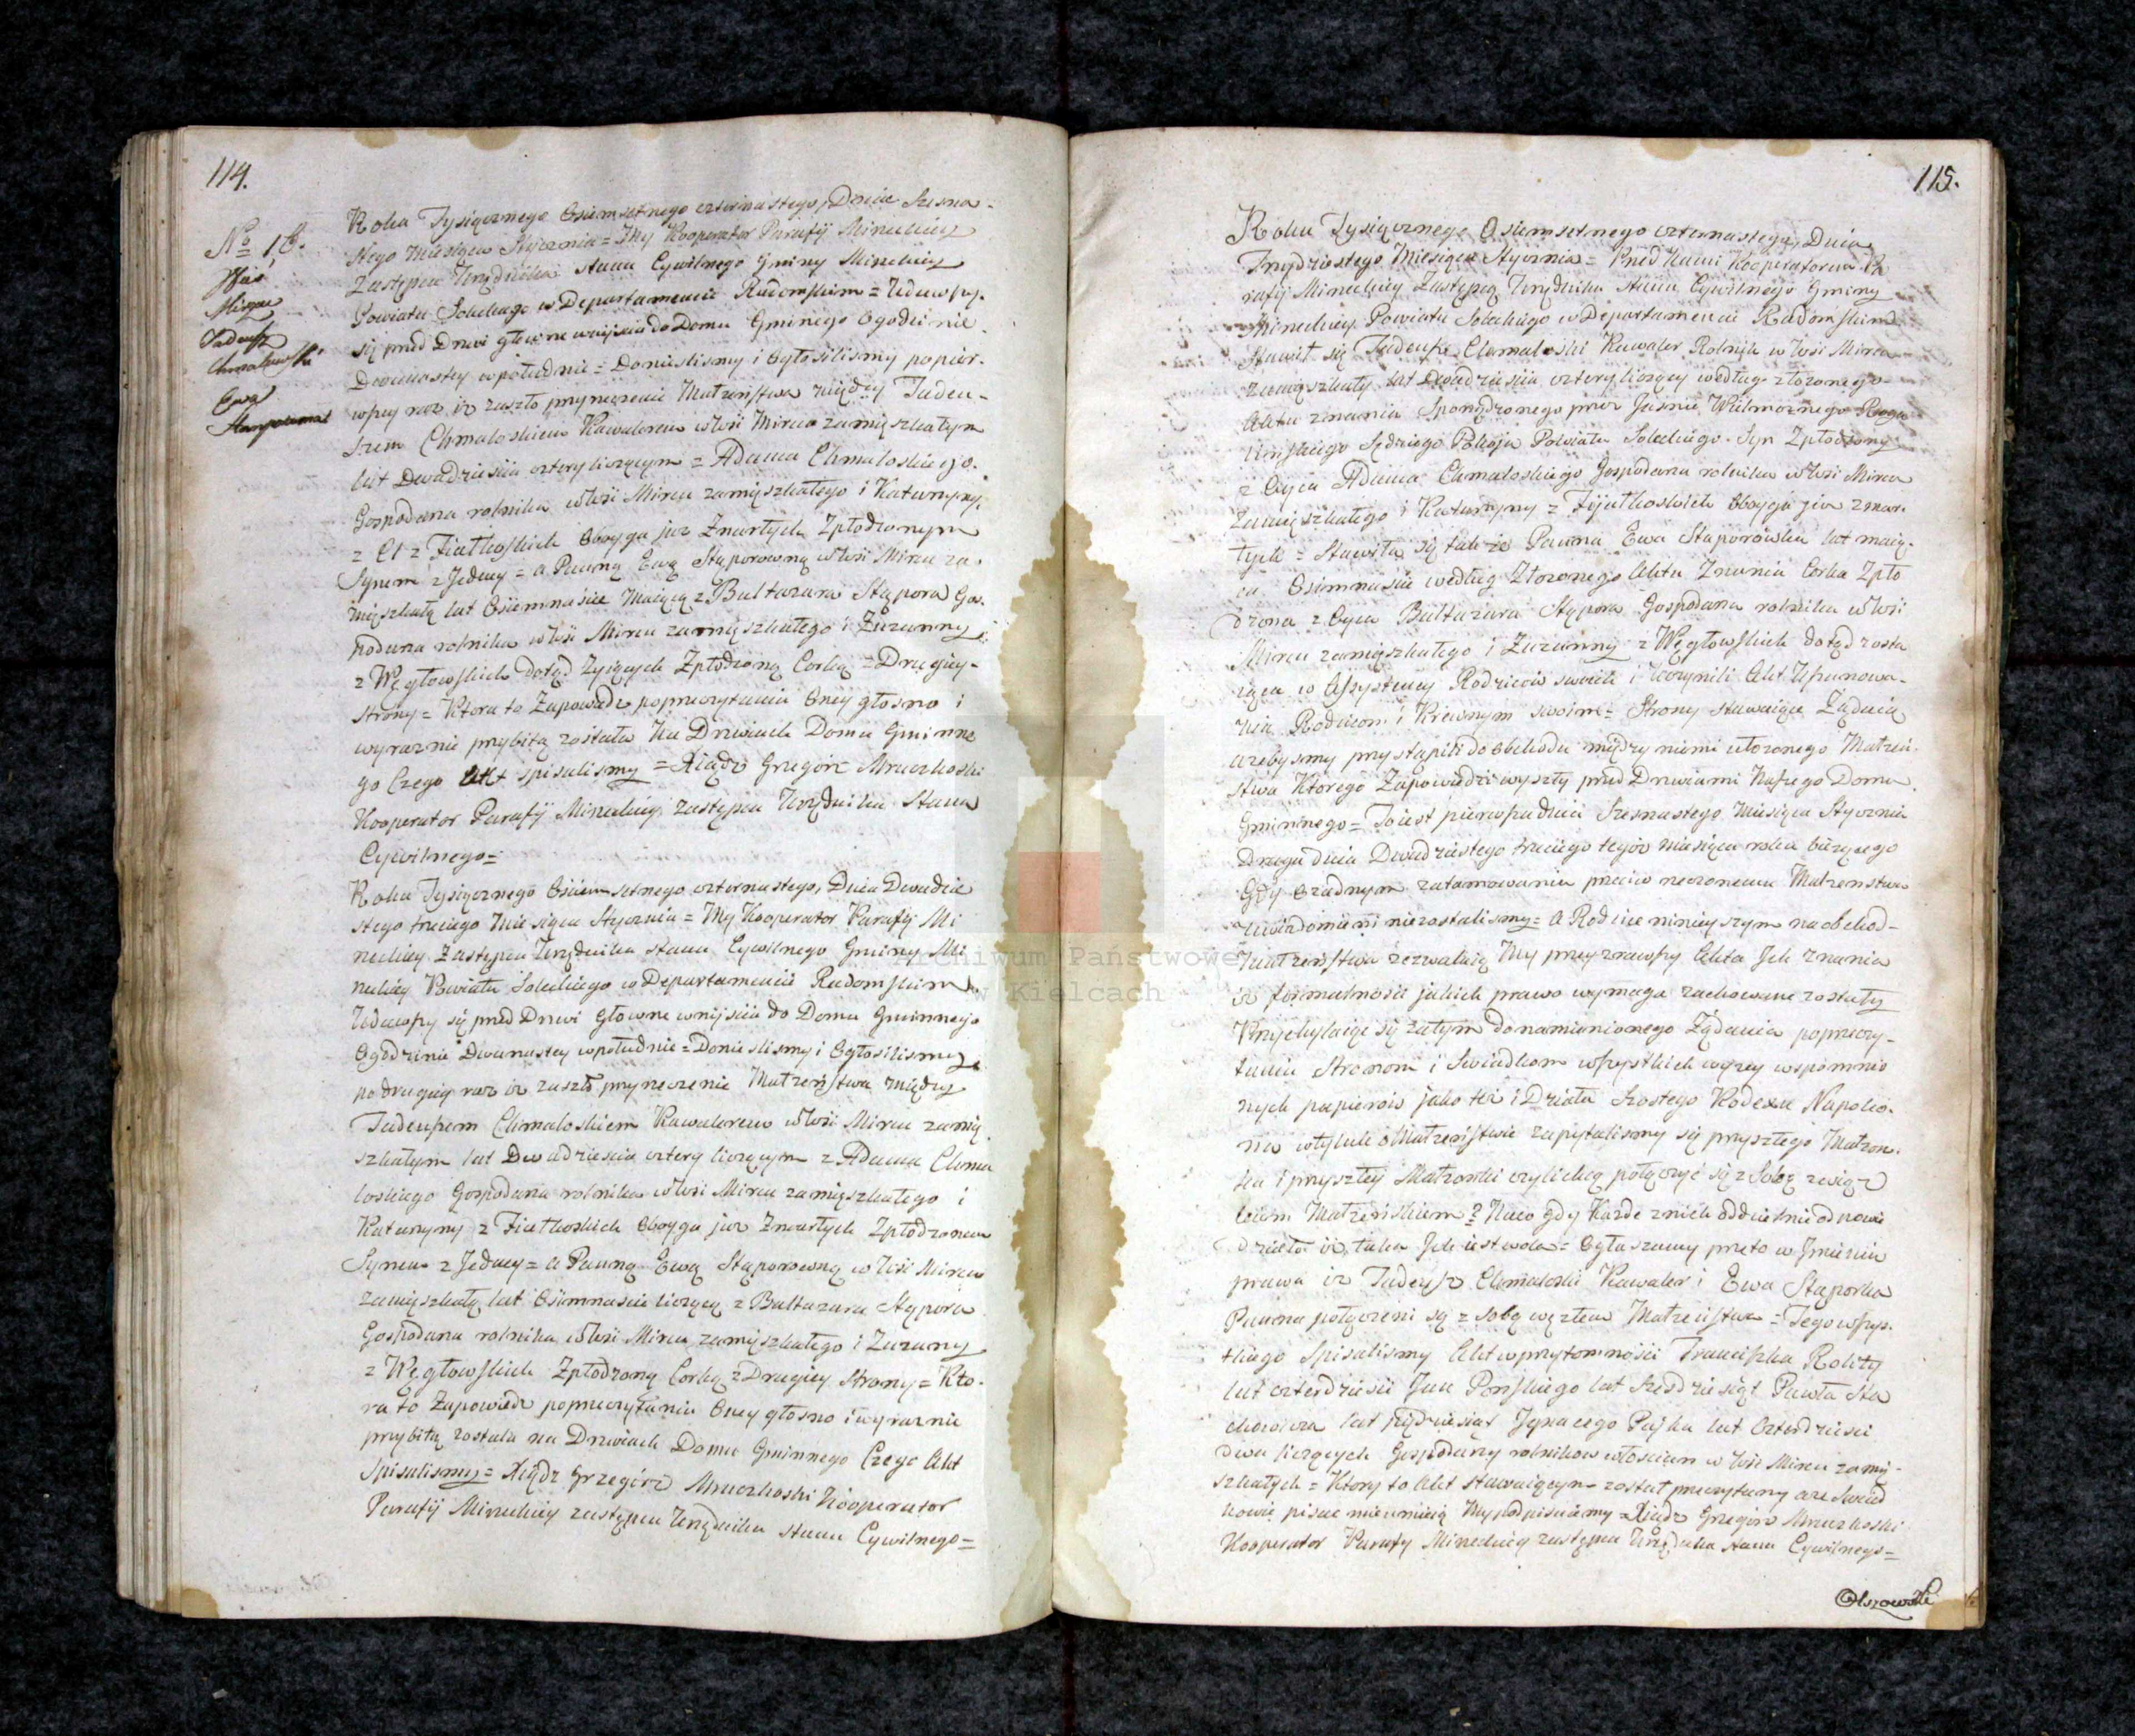 114.
No 16.
Wieś
Mirzec
Tadeusz
Chmalewski
Ewa
Roku Tysiącznego Osiemsetnego czternastego, Dnia Szesna-
stego Miesiąca Stycznia = My Kooperator Parafij Mireckiey
Zastępca Urzędnika stanu Cywilnego Gminy Mireckiey
Powiatu Soleckiego w Departamencie Radomskim = Udawszy
się przed Drzwi główne wniyścia do Domu Gminego o godzinie
Dwunastey w południe = Donieslismy i ogłosilismy po pier-
wszy raz iż zaszło przyrzeczenie Małzeństwa między Tadeu-
szem Chmaloskiem Kawalerem w Wsi Mircu zamięszkałym
lat Dwadzieścia cztery liczącym = Adama Chmaloskiego
Gospodarza rolnika w Wsi Mircu zamięszkałego i Katarzyny
z Fiałkoskich oboyga juz Zmarłych Zpłodzonym
Synem z Jedney = a Panną Ewą Stąporowną w Wsi Mircu za-
mięszkałą lat Osiemnaście Maiącą z Baltazara Stąpora Gos-
podarza rolnika w Wsi Mircu zamięszkałego i Zuzanny
z Węgłowskich dotąd zyiących Zpłodzoną Corką = Drugiey
strony = Ktora to Zapowiedz po przeczytaniu oney głosno i
wyraznie przybitą została Na Drzwiach Domu Gminne
go Czego Akt spisalismy = Xiądz Grzegorz Mruczkoski
Kooperator Parafij Mireckiey zastępca Urzędnika Stanu
Cywilnego =
Roku Tysiącznego Osiemsetnego czternastego, Dnia Dwudzie
stego trzeciego Miesiąca Stycznia = My Kooperator Parafij Mi
reckiey Zastępca Urzędnika stanu Cywilnego Gminy Mi
reckiey Powiatu Soleckiego w Departamencie Radomskim
Udawszy się przed Drzwi Głowne wniyścia do Domu Gminnego
o godzinie Dwunastey w południe = Donieslismy i ogłosilismy
po drugiey raz iz zaszło przyrzeczenie Małzeństwa między
Tadeuszem Chmaloskiem Kawalerem w Wsi Mircu zamię
szkałym lat Dwadzieścia cztery liczącym z Adama Chma
loskiego Gospodarza rolnika w Wsi Mircu zamięszkałego i
Katarzyny z Fiałkoskich oboyga juz Zmarłych Zpłodzonem
Synem z Jedney = a Panną Ewą Stąporowną w Wsi Mircu
zamięszkałą lat Osiemnaście liczącą z Baltazara Stąpora
Gospodarza rolnika w Wsi Mircu zamięszkałego i Zuzanny
z Węgłowskich Zpłodzoną Corką z Drugiey Strony = Kto-
ra to Zapowiedz po przeczytaniu oney głosno i wyraznie
przybitą została na Drzwiach Domu Gminnego Czego Akt
spisalismy = Xiądz Grzegórz Mruczkoski Kooperator
Parafij Mireckiey zastępca Urzędnika stanu Cywilnego =
115.
Roku Tysiącznego Osiemsetnego czternastego, Dnia
Trzydziestego Miesiąca Stycznia = Przed Nami Kooperatorem Pa
rafij Mireckiey Zastępcą Urzędnika Stanu Cywilnego Gminy
Mireckiey Powiatu Soleckiego w Departamencie Radomskim
stawił się Tadeusz Chmaloski Kawaler Rolnik w Wsi Mircu
zamięszkały lat dwadzieścia cztery liczący według złożonego
Aktu znania Sporządzonego przez Jaśnie Wielmoznego
Sędziego Pokoju Powiatu Soleckiego. Syn Zpłodzony
z Oyca Adama Chmaloskiego Gospodarza rolnika w Wsi Mircu
zamięszkałego i Katarzyny z Fijałkoskich oboyga juz zmar-
łych = Stawiła się także Panna Ewa Stąporówska lat maią-
ca Osimnaście według Złozonego Aktu Znania Corka Zpło
dzona z Oyca Baltazara Stąpora Gospodarza rolnika w Wsi
Mircu zamęszkałego i Zuzanny z Węgłowskich dotąd zosta
iąca w Assystencyi Rodziców swoich i uczynili Akt Uszanowa-
nia Rodzicom i Krewnym swoim = Strony stawaiące Ządaią
azebysmy przystąpili do obchodu między niemi ułozonego Małzeń-
stwa Ktorego Zapowiedzi wyszły przed Drzwiami Naszego Domu
Gminnego = To iest pierwsza dnia Szesnastego Miesiąca Stycznia
Druga dnia Dwudziestego trzeciego tegoż miesiąca roku biezącego
Gdy o zadnym zatamowaniu przeciw rzeczonemu Małzenstwu
uwiadomieni niezostalismy = a Rodzice ninieyszym na obchod-
Małzeństwa zezwalaią My przyznawszy Akta Jch znania
iz formalności jakich prawo wymaga zachowane zostały
Przychylaiąc się zatym do namienionego Ządania po przeczy-
taniu Stronom i Swiadkom wszystkich wyzey wspomnio
nych papierow jako tez i Działu szostego Kodexu Napoleo-
na w tytule o Małzeństwie zapytalismy się przyszłego Małzon-
ka i przyszłey Małzonki czyli chcą połączyć się z Sobą związ
kiem Małzeńskiem? Na co gdy Kazde z nich oddzielnie odpowie
działo iz taka Jch iest wola = Ogłaszamy przeto w Jmieniu
prawa iz Tadeusz Chmaloski Kawaler i Ewa Stąporka
Panna połączeni są z sobą węzłem Małzeństwa = Tego wszys-
tkiego Spisalismy Akt w przytomności Franciszka Rokity
lat czterdzieści Jana Pańskiego lat Sześdziesiąt Pawła Sta
chowicza lat pięćdziesiąt Jgnacego Pajka lat Czterdzieści
dwa liczących Gospodarzy rolnikow włościan w Wsi Mircu zamię-
szkałych = Ktory to Akt stawaiącym został przeczytany aze Swiad
kowie pisac nieumieią My podpisuiemy = Xiądz Grzegórz Mruczkoski
Kooperator Parafij Mireckiey zastępca Urzędnika stanu Cywilnego =
Olszowski
Archiwum Państwowe
w Kielcach